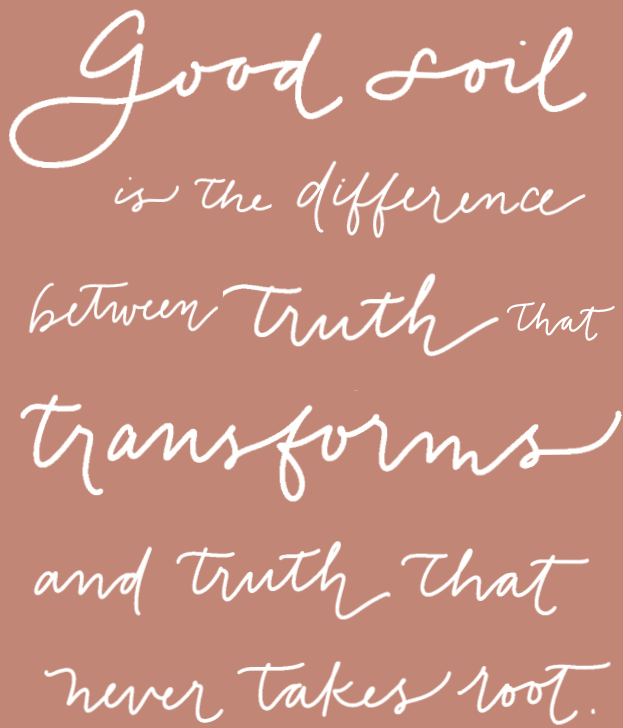 Good soil
is the difference
between truth that
transforms
and truth that
never takes root.